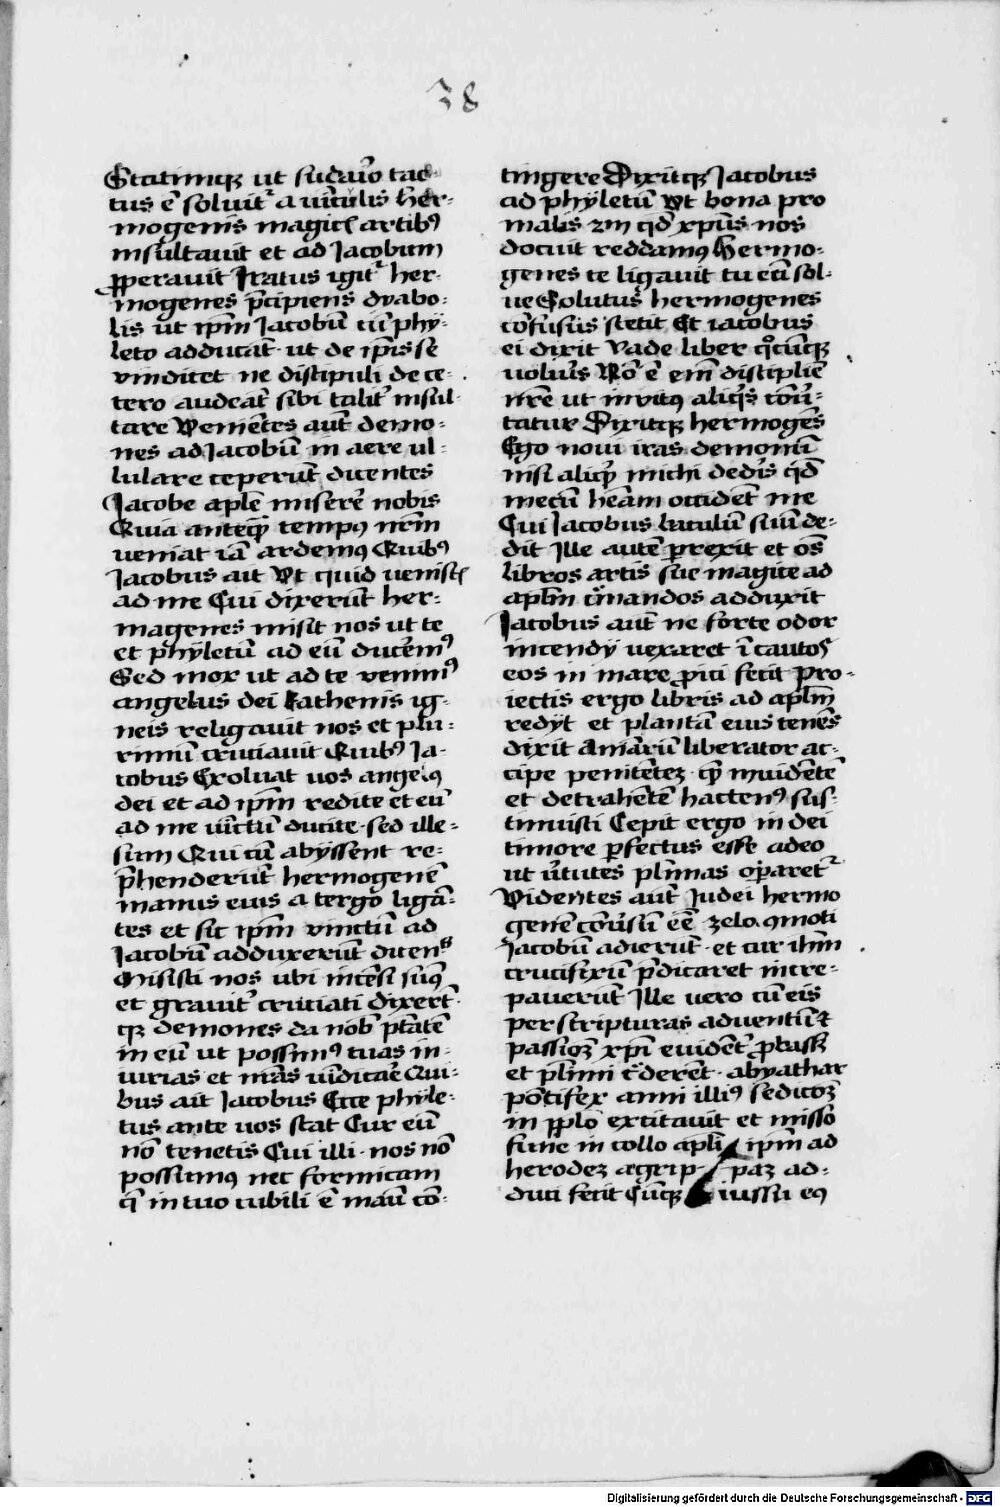 38
Statimque ut sudario tac-
tus ē soluit᷑ a uīculis her-
mogenis magicꝭ artibꝰ
insultauit et ad Jacobum
ꝓperauit Iratus igit᷑ her-
mogenes p̄cipiens dyabo-
lis ut ip̄m Jacobū cū phy-
leto adducāt· ut de ip̄is se
vindicet ne discipuli de ce-
tero audeāt sibi talit᷑ insul-
tare Venientes aūt demo-
nes ad Jacobū in aere ul-
lulare ceperūt dicentes
Jacobe apl̄e miserē nobis
Quia anteqͣ tempꝰ nr̄m
ueniat iā ardemꝰ Quibꝰ
Jacobus ait Vt quid uenistꝭ
ad me Cui dixerūt her-
magenes misit nos ut te
et phyletū ad eū ducēmꝰ
Sed mox ut ad te venimꝰ
angelus dei kathenis ig-
neis religauit nos et plu-
rimū cruciauit Quibꝰ Ja-
cobus Exoluat uos angelꝰ
dei et ad ip̄m redite et eū
ad me uīctū ducite· sed ille-
sum Qui cū abyssent re-
p̄henderūt hermogenē
manus eius a tergo ligā-
tes et sic ip̄m vinctū ad
Jacobū adduxerūt dicen̄s
Misisti nos ubi incēsi sumꝰ
et grauit᷑ cruciati dixerūt·
qꝫ demones da nob̄ ptātē
in eū ut possimꝰ tuas in-
iurias et nr̄as uīdicaē Qui-
bus ait Jacobus Ecce phyle-
tus ante uos stat Cur eū
nō tenetis Cui illi· nos nō
possumꝰ nec formicam
q̄ in tuo cubili ē manū cō-
tingere Dixitqꝫ Jacobus
ad phyletū Vt bona pro
malis 2m qd̄ xpūs nos
docuit reddamꝰ Hermo-
genes te ligauit tu eū sol-
ue Solutus hermogenes
cōfusus stetit Et iacobus
ei dixit Vade liber qͦcūqꝫ
uolueris Nō ē eīm disciplie
nr̄e ut inuitꝰ aliqͥs cōuer-
tatur Dixitqꝫ hermogēs
Ego noui iras demonū
nisi aliqͥd michi dederis qd̄
mecū hēam occidēt me
Cui Jacobus baculū suū de-
dit Ille autē perrexit et oēs
libros artis sue magice ad
apl̄m cͥmandos adduxit
Jacobus aūt ne forte odor
incendy uexaret īcautos
eos in mare ꝓici fecit Pro-
iectis ergo libris ad apl̄m
redyt et plantā eius tenēs
dixit Animarū liberator ac-
cipe penitētez qͥ inuidētē
et detrahētē hactenꝰ sus-
tinuisti Cepit ergo in dei
timore perfectus esse adeo
ut uīrtutes pl̄imas oꝑaret᷑
Videntes aūt Judei hermo
genē conuersū eē zelo ꝯmoti
Jacobū adierūt· et cur ih̄m
crucifixū p̄dicaret incre-
pauerūt Ille uero cū eis
per scripturas aduentū et
passioꝫ xp̄i euidēt᷑ ꝓbasset
et pl̄imi cͬderēt· abyathar
pōtifex anni illiꝰ sedicoꝫ
in ppl̄o excitauit et misso
fune in collo apl̄i ip̄m ad
herodez agrip- paz ad-
duci fecit Cūqꝫ iussu eꝰ
Digitalisierung gefördert durch die Deutsche Forschungsgemeinschaft - DFG